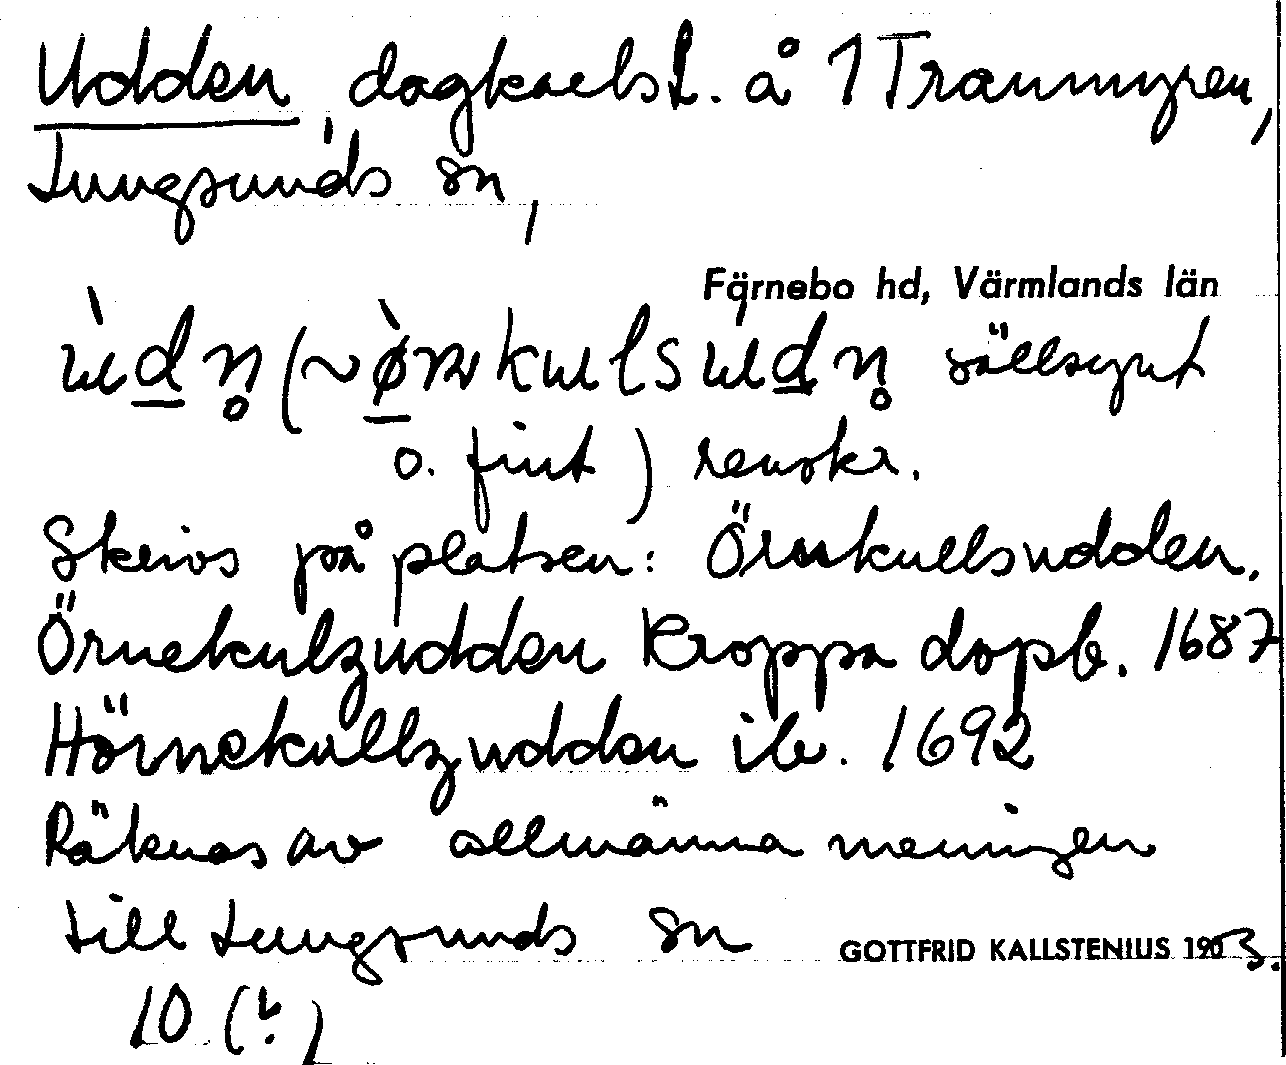 Udden, dagkarlst. å 1 Tranmyren,
Lungsunds sn,
Färnebo hd, Värmlands län
sällsynt
o. fint) renskr.
Skrivs på platsen: Örnkullsudden.
Örnekulzudden Kroppa dopb. 1687
Hörnekullzudden ib. 1692
Räknas av allmänna meningen
till Lungsunds sn
GOTTFRID KALLSTENIUS 1903.
10 (